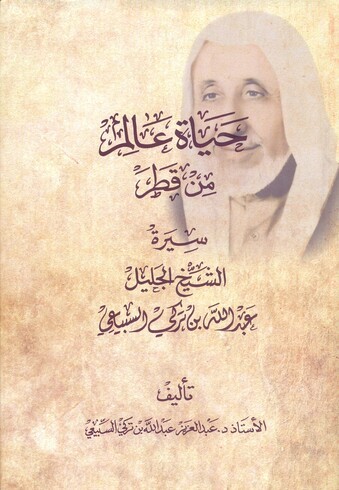 حَيَاةُ عَالِمٍ
مِنْ قَطَر
سِيرَة
الشيخ الجليل
عبد الله بن تركي السبيعي
تأليف
الأستاذ د. عبد العزيز عبد الله بن تركي السبيعي